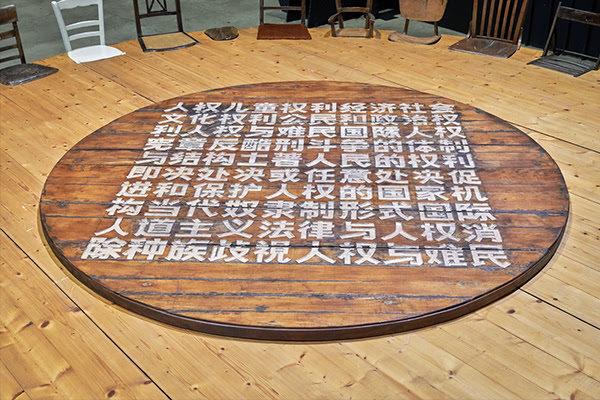 人权儿童权利经济社会
文化权利公民和政治权
利人权与难民国际人权
宪章反酷刑斗争的体制
与结构土著人民的权利
即决处决或任意处决促
进和保护人权的国家机
构当代奴隶制形式国际
人道主义法律与人权消
除种族歧视人权与难民